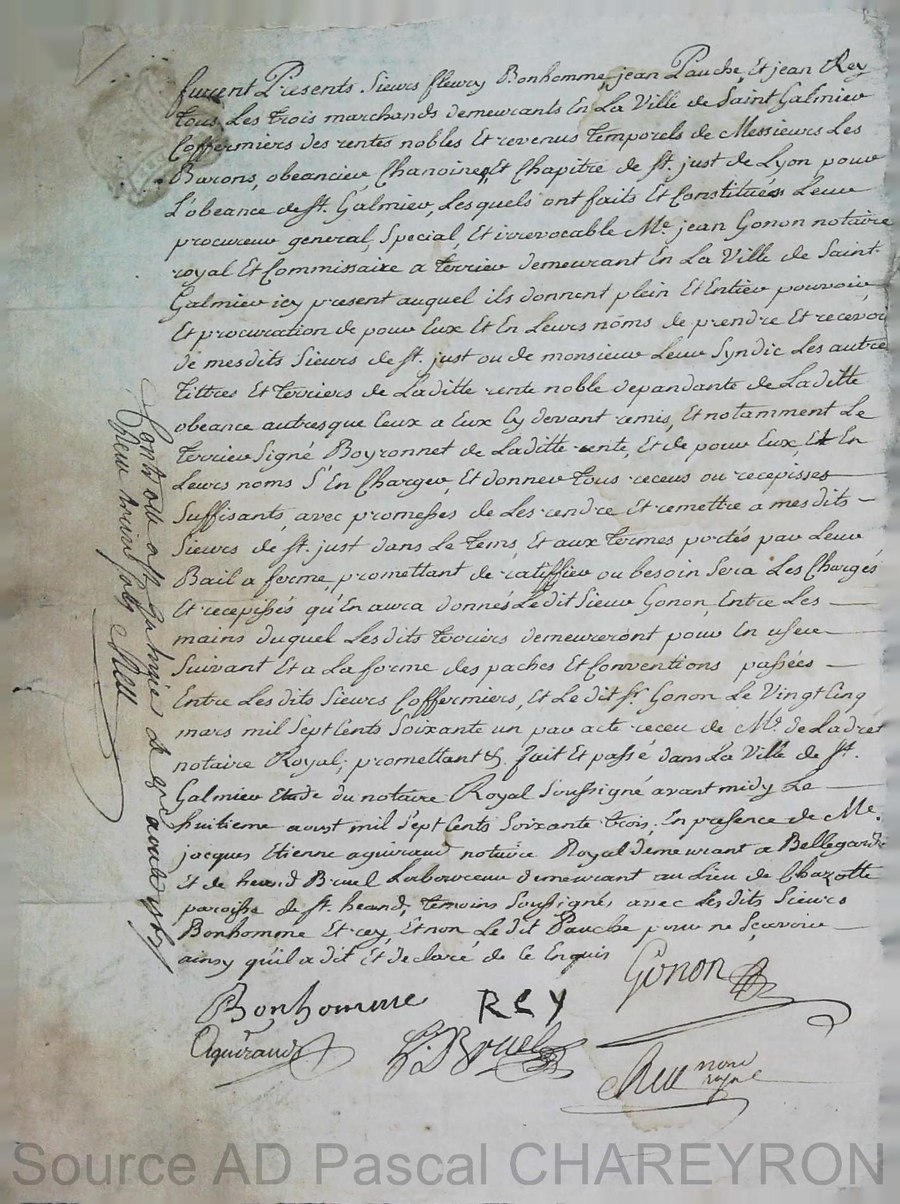 furent Presents Sieurs fleury Bonhomme, jean Pauche, Et jean Rey
tous Les trois marchands demeurants En La Ville de Saint Galmier
Coffermiers des rentes nobles Et revenus temporels de Messieurs Les
Barons, obeancier, Chanoines, Et Chapitre de st. just de Lyon pour
L'obeance de st. Galmier, Lesquels ont faits Et Constitués Leur
procureur general, Special, Et irrevocable Me. jean Gonon notaire
royal Et Commissaire a terrier demeurant En La Ville de Saint
Galmier icy present auquel ils donnent plein Et Entier pouvoir
Et procuration de pour Eux Et En Leurs noms de prendre Et recevoir
de mesdits Sieurs de st. just ou de monsieur Leur Syndic Les autres
tiltres Et terriers de Laditte rente noble dépandante de Laditte
obeance autresque Ceux a Eux Cy devant remis, Et notamment Le
terrier Signé Boyronnet de Laditte rente, Et de pour Eux, Et En
Leurs noms S'En Charger, Et donner tous receus ou recepisses
Suffisants, avec promesses de Les rendre Et remettre a mesdits
Sieurs de st. just dans Le tems, Et aux termes portés par Leur
Bail a ferme, promettant de ratiffier ou besoin Sera Les Charges
Et recepissés qu'En aura donnés Ledit Sieur Gonon, Entre Les
mains duquel Lesdits terriers demeureront pour En user
Suivant Et a La forme des paches Et Conventions passées
Entre Lesdits Sieurs Coffermiers, Et Ledit sr. Gonon Le Vingt Cinq
mars mil Sept Cents Soixante un par acte receu de Me. de Ladret
notaire Royal; promettant &. fait Et passé dans La Ville de st.
Galmier Etude du notaire Royal Soussigné avant midy Le
huitieme aoust mil Sept Cents Soixante trois, En presence de Me.
jacques Etienne aguiraud notaire Royal demeurant a Bellegarde
Et de heand Bruel Laboureur demeurant au Lieu de Chazotte
paroisse de st. heand, temoins Soussignés avec Lesdits Sieurs
Bonhomme Et rey, Et non Ledit Pauche pour ne Sçavoir
ainsy qu'il a dit Et declaré de Ce Enquis
Gonon
Bonhomme
REY
Aguiraud
Bruel
nore
royal
Source AD Pascal CHAREYRON